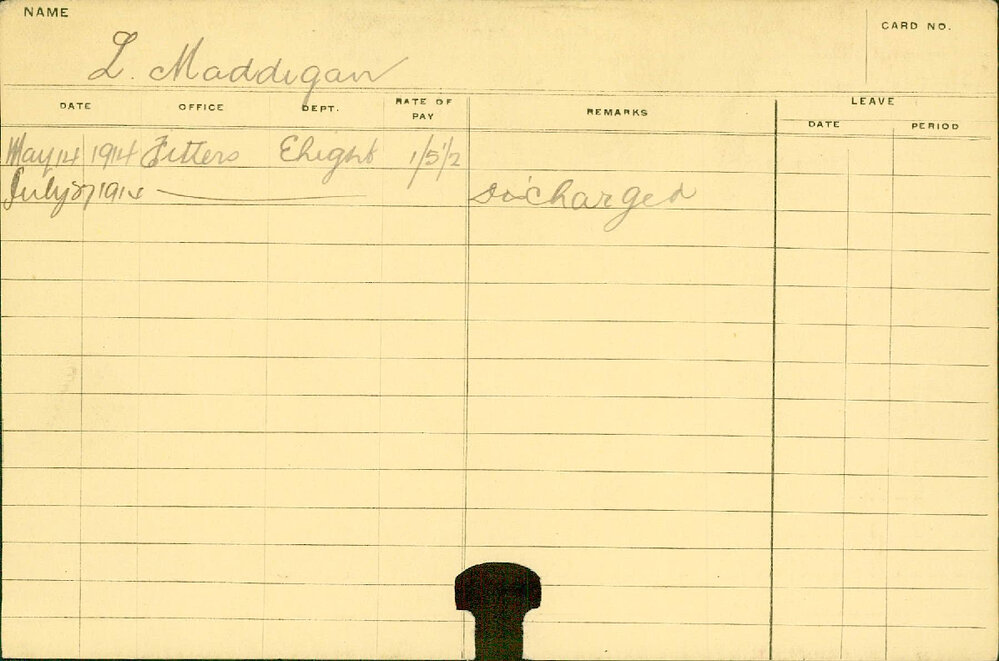 NAME
CARD NO.
L. Maddigan
DATE OFFICE DEPT. RATE OF PAY REMARKS LEAVE
DATE PERIOD
May 14 1914 Fitters Elight 1/5 1/2
July 27 1914 Discharged